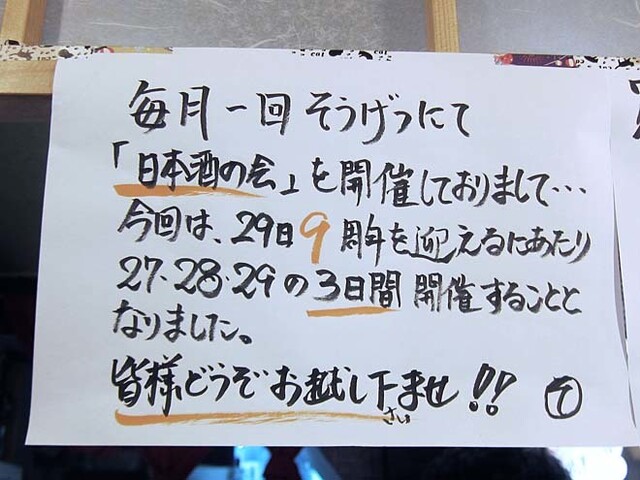 毎月一回そうげつにて
「日本酒の会」を開催しておりまして…
今回は、29日9周年を迎えるにあたり
27・28・29の3日間開催することと
なりました。
皆様どうぞお越し下さいませ!!